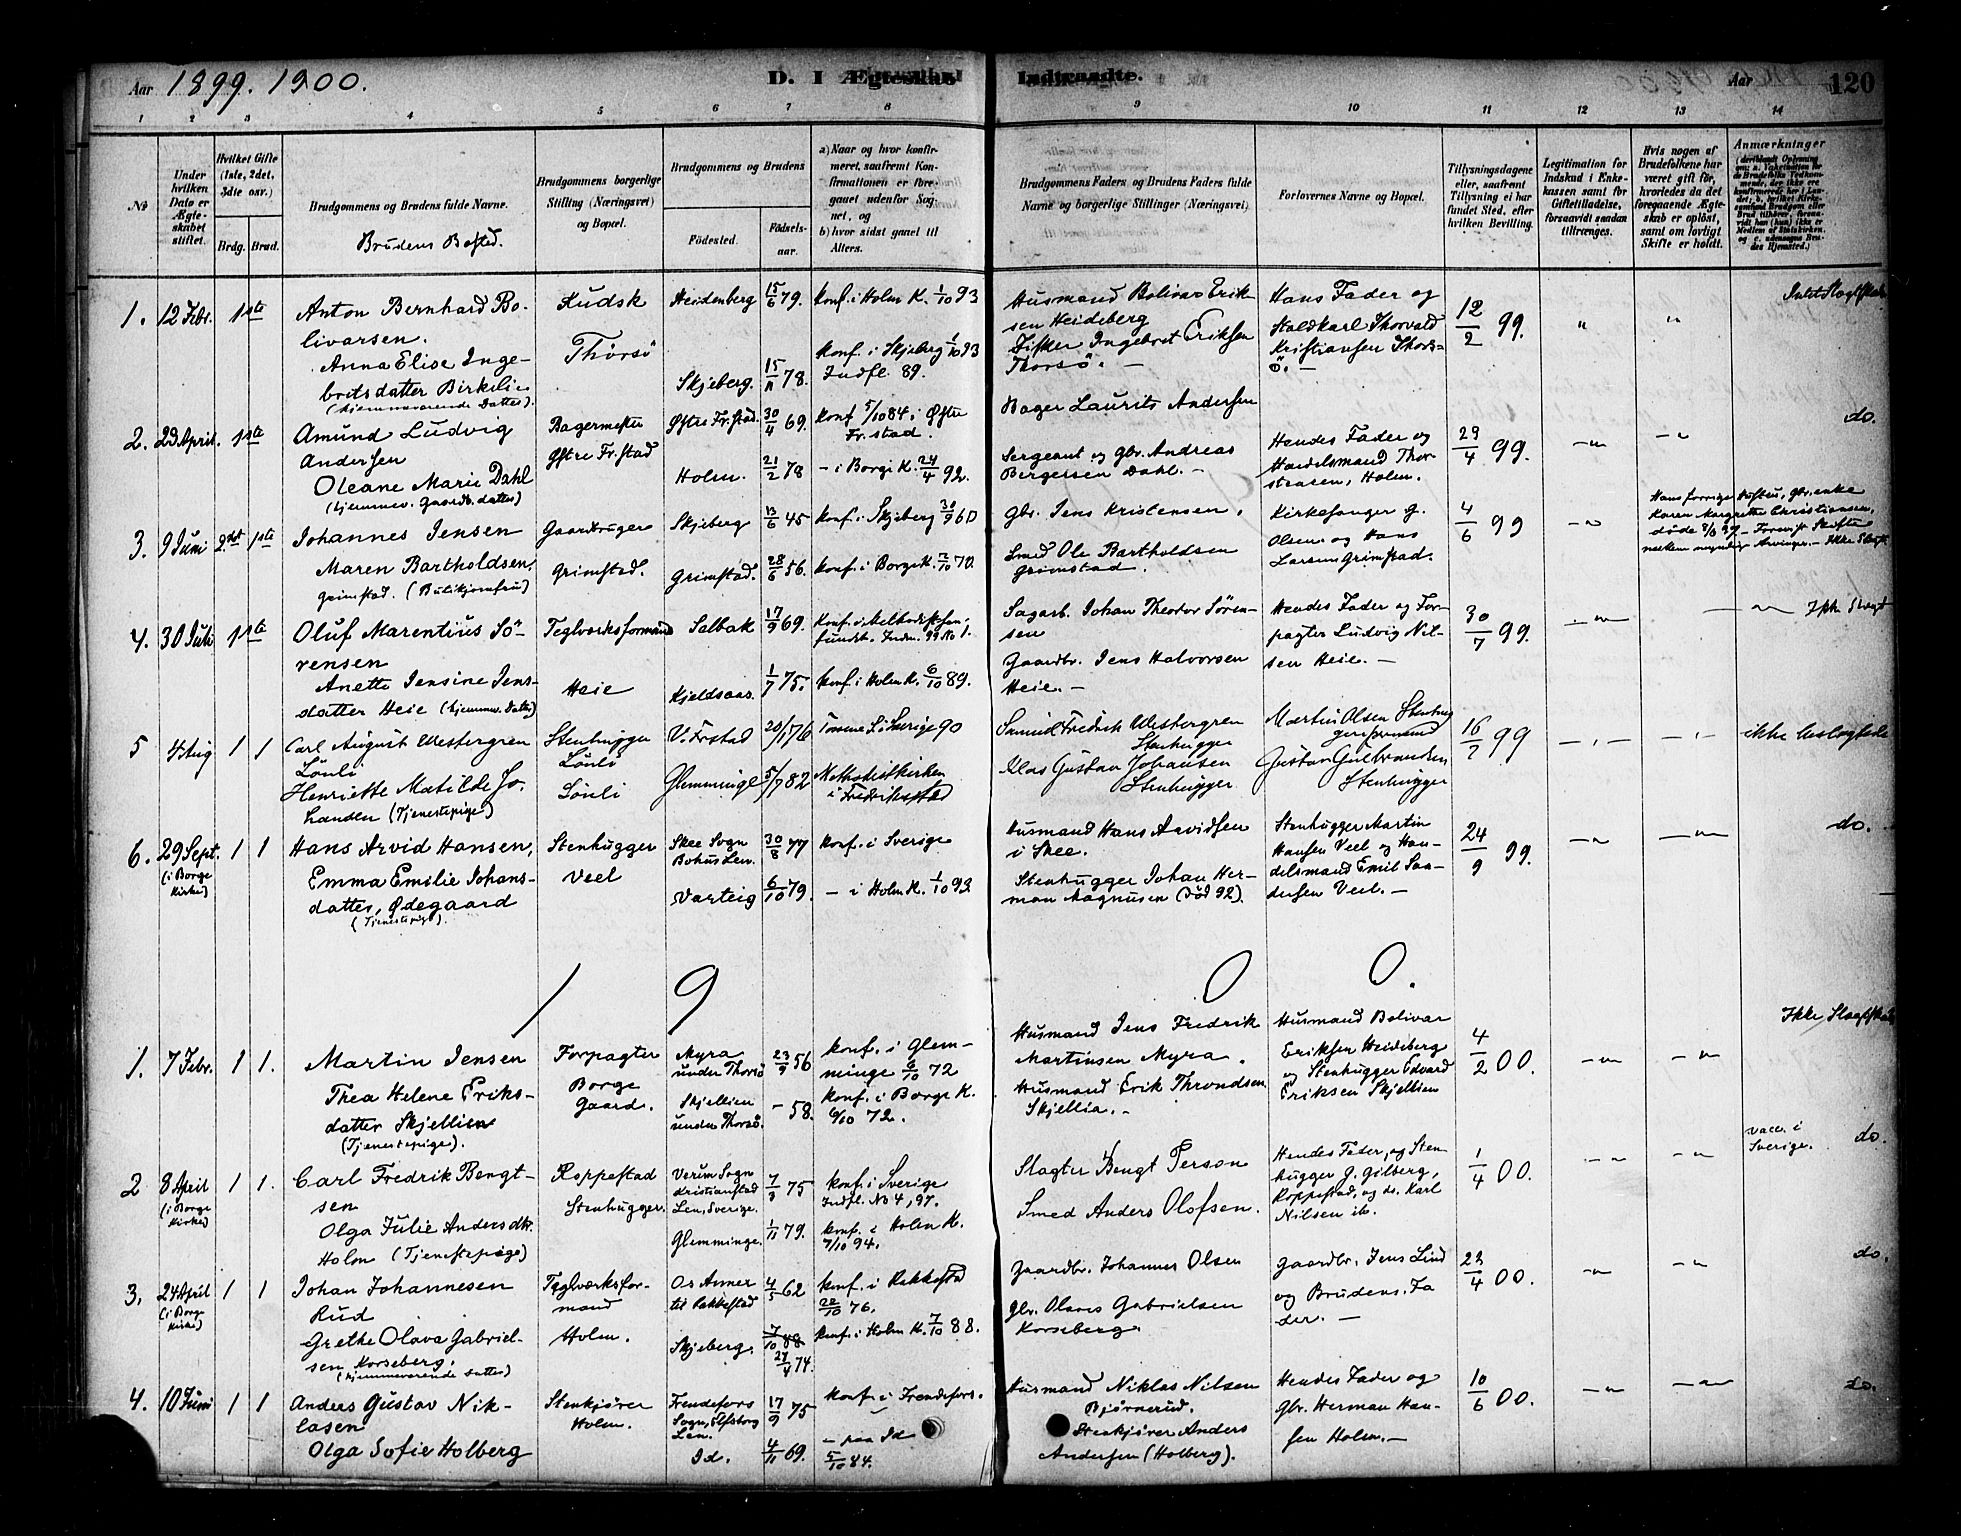 Aar 1899. 1900.
D. I Ægteskab
Indtraadte.
Aar
120
1 2 3 4 5 6 7 8 9 10 11 12 13 14
No
Under hvilken Dato er Ægteskabet stiftet.
Hvilket Gifte (1ste, 2det, 3die osv.)
Brdg. Brud.
Brudgommens og Brudens fulde Navne.
Brudens Bosted.
Brudgommens borgerlige Stilling (Næringsvei) og Bopæl.
Brudgommens og Brudens
Födested.
Födselsaar.
a) Naar og hvor konfirmeret, saafremt Konfirmationen er foregaaet udenfor Sognet, og
b) hvor sidst gaaet til Alters.
Brudgommens Faders og Brudens Faders fulde Navne og borgerlige Stillinger (Næringsvei)
Forlovernes Navne og Bopæl.
Tillysningsdagene eller, saafremt Tillysning ei har fundet Sted, efter hvilken Bevilling.
Legitimation for Indskud i Enkekassen samt for Giftetilladelse, forsaavidt saadan tiltrænges.
Hvis nogen af Brudefolkene har været gift før, hvorledes da det foregaaende Ægteskab er oplöst, samt om lovligt Skifte er holdt.
Anmærkninger
1. 12 Febr. 1ste
Anton Bernhard Bolivarsen.
Anna Elise Ingebretsdatter Birkelie
(hjemmeværende Datter).
Kudsk
Thorsö
Heidenberg 15/6 79.
Skjeberg. 15/11 78.
konf. i Holm K. 1/10 93
konf. i Skjeberg 1/10 93
Indfl. 89.
Husmand Bolivar Eriksen Heideberg
Fisker Ingebret Eriksen
Thorsö. —
Hans Fader og
Staldkarl Thorvald
Kristiansen Thorsö. —
12/2 99.
2. 23 April. 1ste
Amund Ludvig
Andersen
Oleane Marie Dahl
(hjemmev. Gaardb. datter)
Bagermester
Østre Fr.stad
Østre Fr.stad. 30/4 69.
Holm. 21/2 78
konf 5/10 84 i Østre
Fr.stad.
– i Borge K. 24/4 92.
Bager Laurits Andersen
Sergeant og gbr. Andreas
Bergersen Dahl. —
Hendes Fader og
Handelsmand
Holm.
23/4 99.
do.
3. 9 Juni 2det 1ste
Johannes Jensen
Maren Bartholdsen,
Grimstad.
Gaardbruger
Grimstad.
Skjeberg 13/6 45
Grimstad. 28/6 56.
konf. i Skjeberg 30/9 60
konf. i Borge K. 2/10 70.
Gbr. Jens Kristensen.
Smed Ole Bartholdsen
Grimstad.
Kirkesanger G.
Olsen og Hans
Larsen Grimstad.
4/6 99
Hans forrige Hustru, gbr.enke
Karen Margrethe Christiansen,
døde
4. 30 Juli 1ste
Oluf Marentius Sörensen
Anette Jensine Jensdatter Heie (hjemmev. Datter)
Teglværksformand
Heie
Selbak 17/9 69.
Kjeldsaas. 1/7 75.
konf. i Holm K. 6/10 89.
Sagarb. Johan Theodor Sörensen
Gaardbr. Jens Halvorsen
Heie. —
Hendes Fader og Forpagter Ludvig Nilsen Heie. —
30/7 99.
5 4 Aug 1 1
Carl August Westergren
Lönli
Henriette Matilde Johansen (Tjenestepige)
Stenhugger
Lönli
Lönli
V. Frstad 20/1 76
Glemminge 5/7 82
Methodistkirken
i Fredrikstad
Smed Fredrik Westergren
Stenhugger
Klas Gustav Johansen
Stenhugger
Martin Olsen
Gustav Gulbrandsen
Stenhugger
16/7 99
ikke beslegtede
6. 29 Sept. 1 1
(i Borge Kirke)
Hans Arvid Hansen,
Emma Emilie Johansdatter, Ødegaard
(Tjenestepige).
Stenhugger
Veel
Skee Sogn
Bohus Len. 30/8 77
Varteig 6/10 79.
konf. i Sverige
– i Holm K. 1/10 93.
Husmand Hans Arvidsen
i Skee.
Stenhugger Johan Herman Magnusen (död 92).
Stenhugger Martin
Hansen Veel og Handelsmand Emil
Veel. —
24/9 99.
do.
1 9 0 0.
1. 7 Febr. 1 1.
Martin Jensen
Thea Helene Eriksdatter Skjellien
(Tjenestepige).
Forpagter
Borge
Gaard.
Myra
under Thorsö 23/9 56
Skjellien
under Thorsö. – 58.
konf. i Glemminge 6/10 72
konf. i Borge K.
6/10 72.
Husmand Jens Fredrik
Martinsen Myra.
Husmand Erik Throndsen
Skjellia. –
Husmand Bolivar
Eriksen Heideberg
og Stenhugger Edvard
Eriksen Skjellien
4/2 00.
2 8 April 1 1.
(i Borge Kirke)
Carl Fredrik Bengtsen
Olga Julie Andersdtr.
Holm (Tjenestepige)
Roppestad
Stenhugger.
Verum Sogn
Kristianstad
Len, Sverige. 7/3 75
Glemminge. 1/11 79.
konf. i Sverige
Indfl. No 4, 97.
konf. i Holm K.
7/10 94.
Slagter Bengt Person
Smed Anders Olofsen.
Hendes Fader, og Stenhugger J. Gilberg,
Roppestad, og do. Karl
Nilsen ib.
1/4 00.
vacc. i
Sverige. do.
3. 24 April 1 1
(i Borge Kirke)
Johan Johannesen
Rud
Grethe Olava Gabrielsen Korseberg.
(hjemmeværende Datter)
Teglværksformand
Holm.
Os Anner
til Rakkestad 4/5 62
Skjeberg. 7/10 88
27/4 74.
konf. i Rakkestad
22/10 76.
konf. i Holm K. 7/10 88.
Gaardbr. Johannes Olsen
Gbr. Olaves Gabrielsen
Korseberg.
Gaardbr. Jens Lind
og Brudens Fader. —
23/4 00.
do.
4. 10 Juni 1 1
Anders Gustav Niklasen
Olga Sofie Holberg
Stenkjører
Holm.
Frendefors
Sogn, Elfsborg
Len. 17/9 75
Id. 4/11 69.
konf. i Frendefors.
– paa Id
5/10 84.
Husmand Niklas Nilsen
Bjørnerud.
Stenkjører Anders
Andersen (Holberg).
Hendes Fader og
Gbr. Herman Hansen Holm. —
10/6 00.
do.